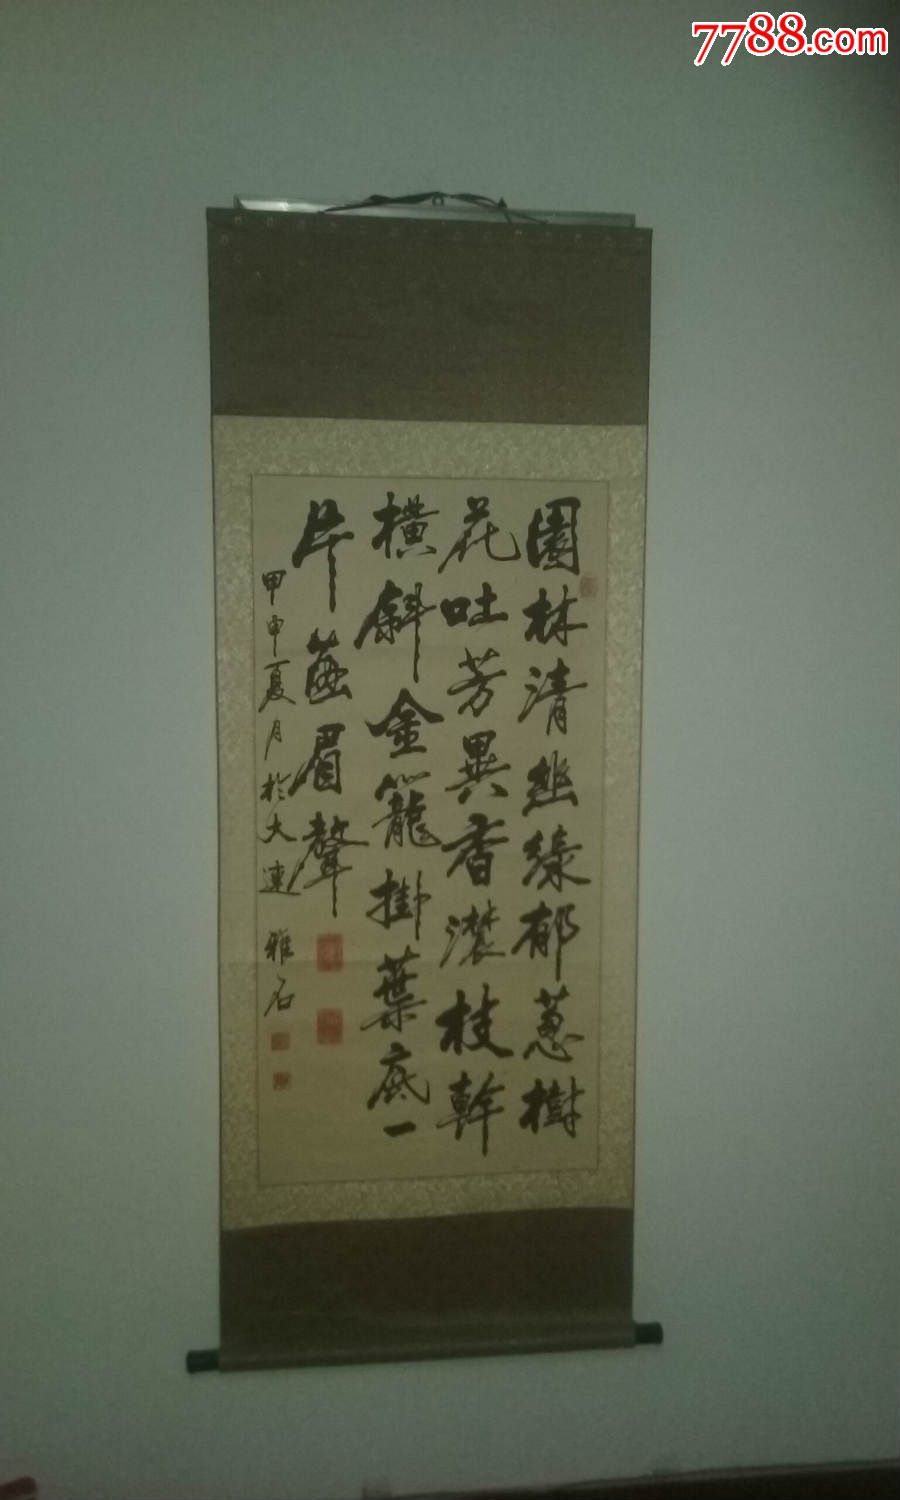 7788.com
園林清幽綠郁蔥樹
花吐芳異香濃枝幹
橫斜金籠掛葉底一
片畫眉聲
甲申夏月於大連 雅石